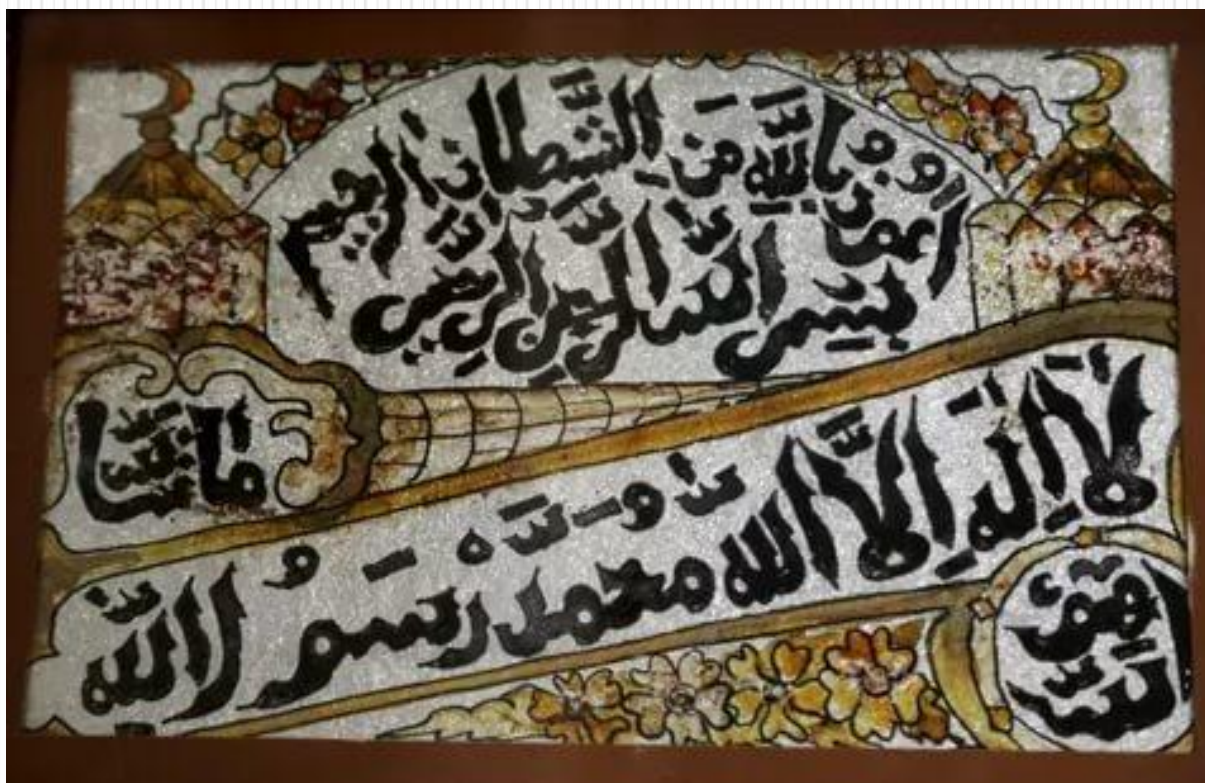 اعوذ بالله من الشطان الرجيم
بسم الله الرحمن الرحيم
لا اله الا الله محمد رسول الله